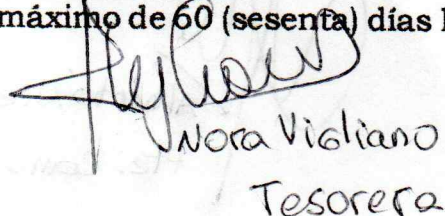 máximo de 60 (sesenta) días
Nora Vigliano
Tesorera